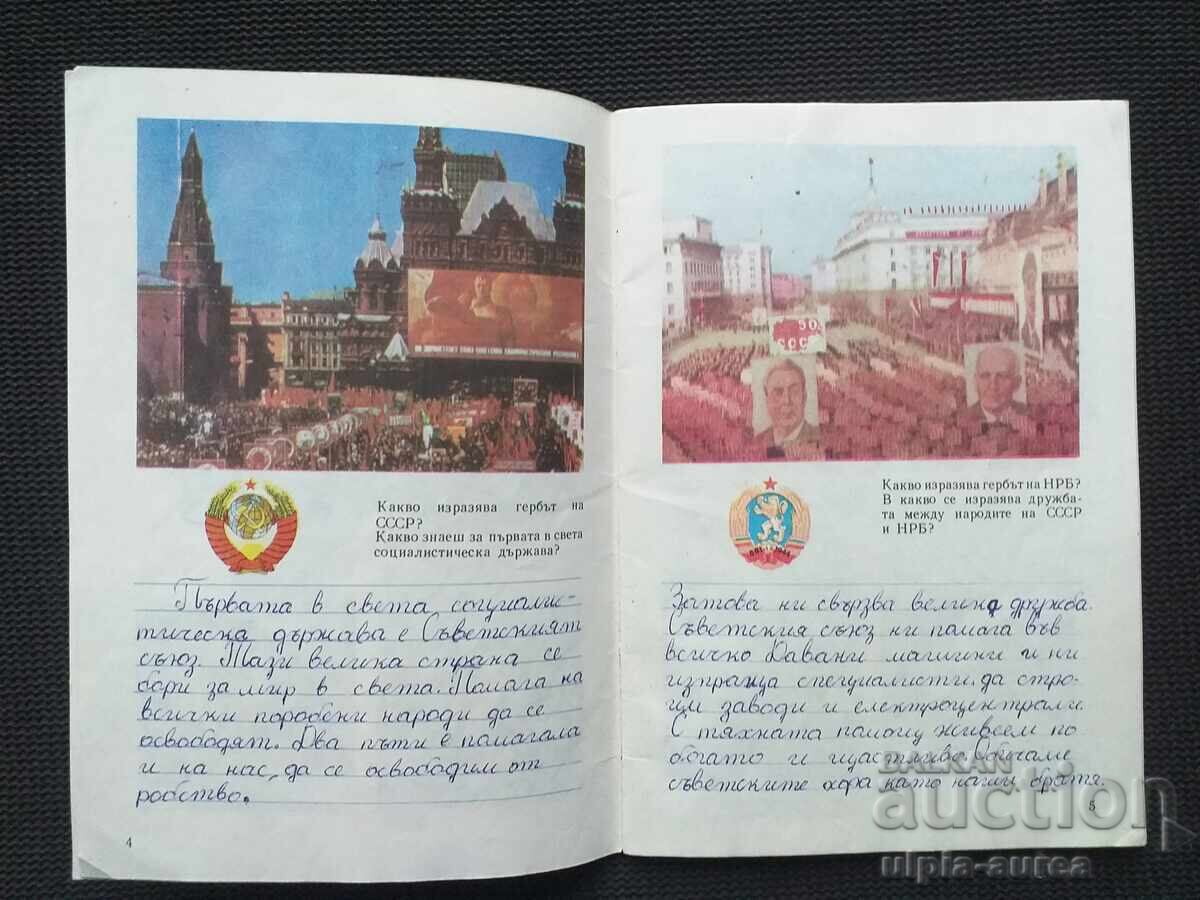 50
СССР
Какво изразява гербът на
СССР?
Какво знаеш за първата в света
социалистическа държава?
Първата в света социалис-
тическа държава е Съветският
съюз. Тази велика страна се
бори за мир в света. Помага на
всички поробени народи да се
освободят. Два пъти е помагала
и на нас, да се освободим от
робство.
4
681 1944
Какво изразява гербът на НРБ?
В какво се изразява дружба-
та между народите на СССР
и НРБ?
Затова ни свързва велика дружба.
Съветския съюз ни помага във
всичко Давани машини и ни
изпраща специалисти да стро-
им заводи и електроцентрали.
С тяхната помощ живеем по
богато и щастливо. Обичаме
съветските хора като наши братя.
5
BALKAN
auction
ulpia-autea